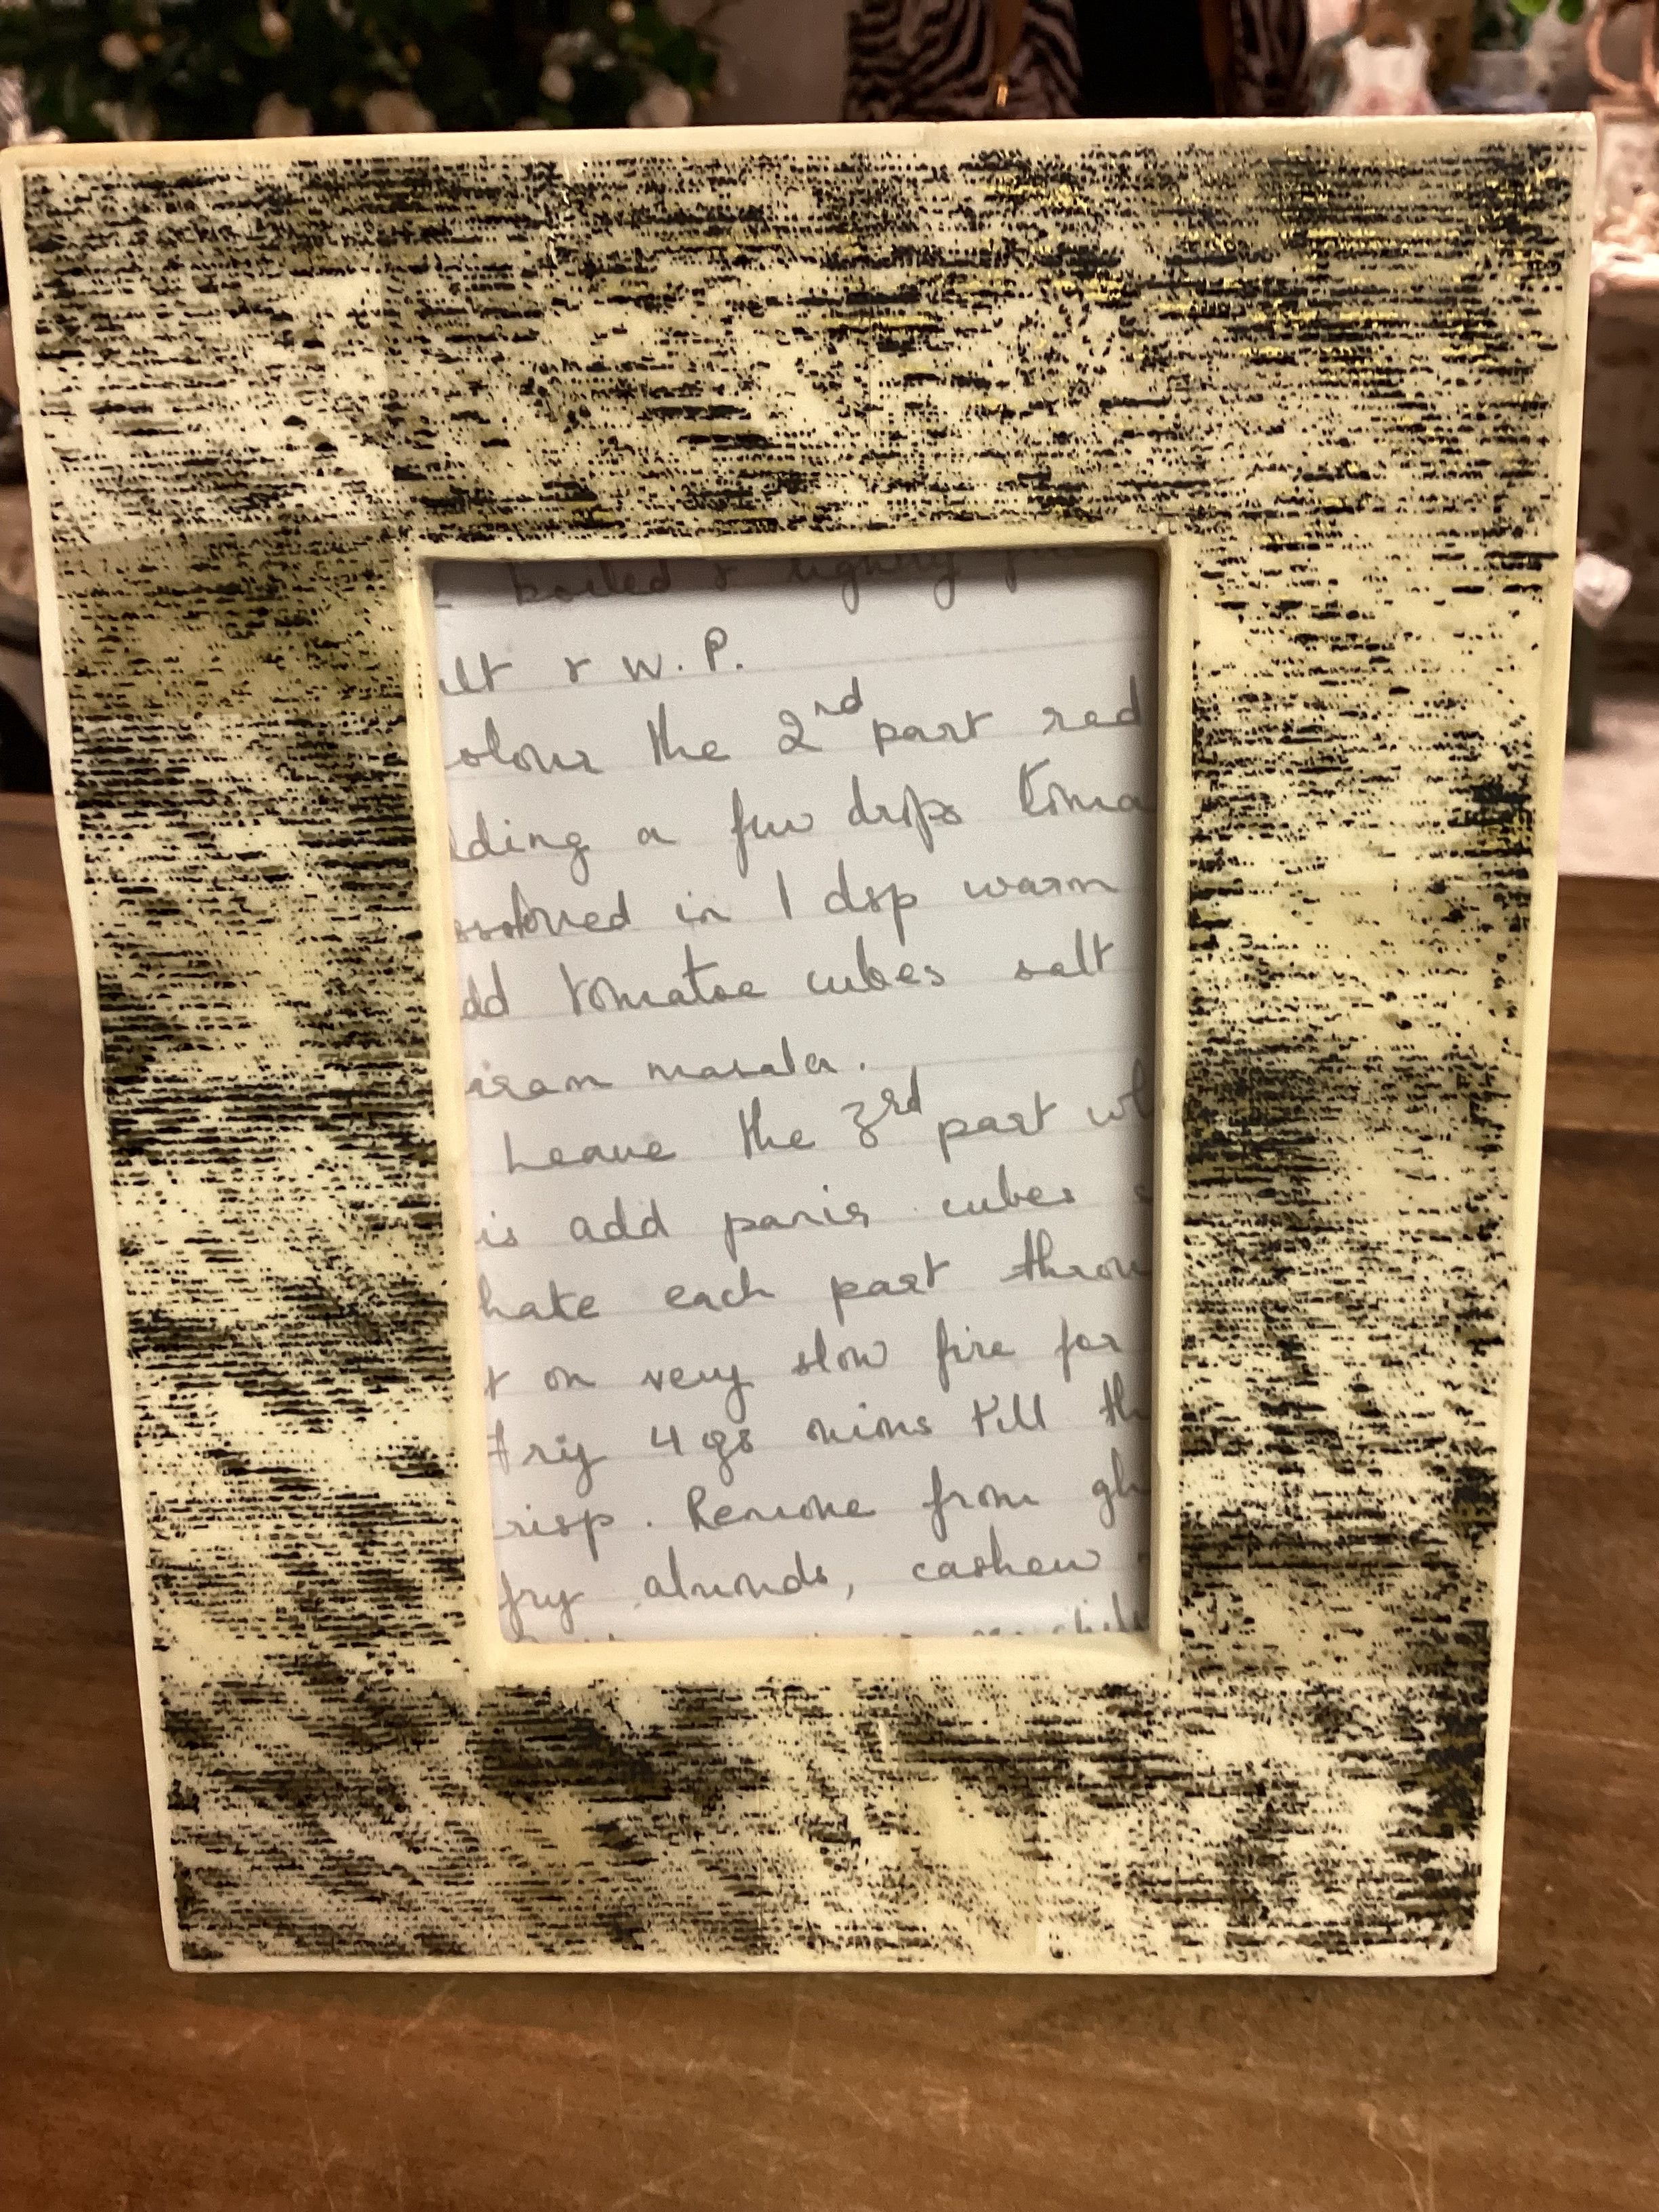 boiled & lightly
alt & W. P.
olour the 2nd part red
dding a few drops toma
ssolved in 1 dsp warm
dd tomatoe cubes salt
aram masala.
Leave the 3rd part wh
is add panir cubes
hate each part throu
t on very slow fire for
Fry 4 gs onions till th
risp. Remove from gh
fry almonds, cashew